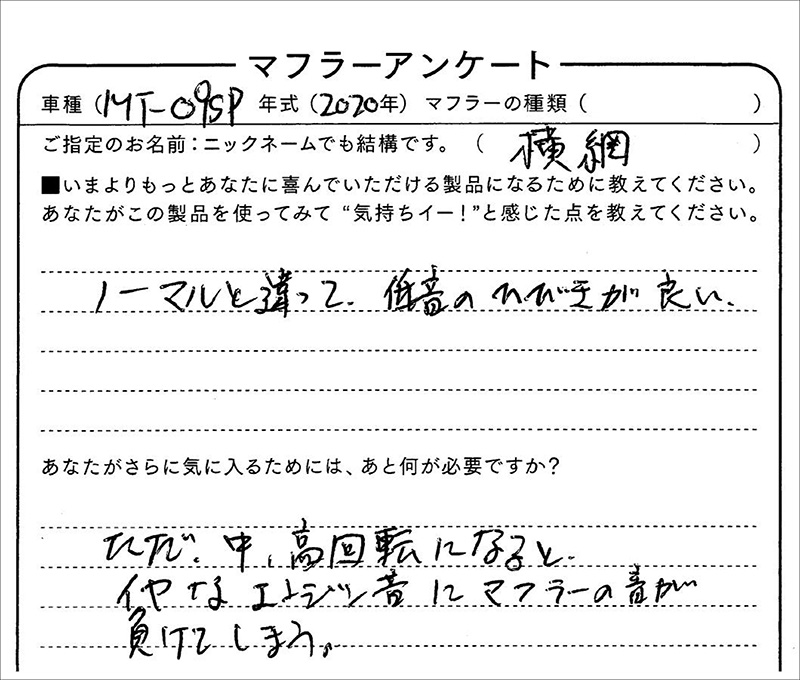 マフラーアンケート
車種（MT-09SP 年式（2020年）マフラーの種類（　　　）
ご指定のお名前：ニックネームでも結構です。（ 横綱 ）
■いまよりもっとあなたに喜んでいただける製品になるために教えてください。
あなたがこの製品を使ってみて“気持ちイー！”と感じた点を教えてください。
ノーマルと違って、低音のひびきが良い、
あなたがさらに気に入るためには、あと何が必要ですか？
ただ、中、高回転になると、
イヤなエンジン音にマフラーの音が
負けてしまう。